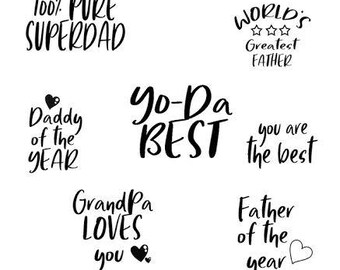 100% PURE
SUPERDAD
WORLD'S
Greatest
FATHER
Daddy
of the
YEAR
Yo-Da
BEST
you are
the best
GrandPa
LOVES
you
Father
of the
year